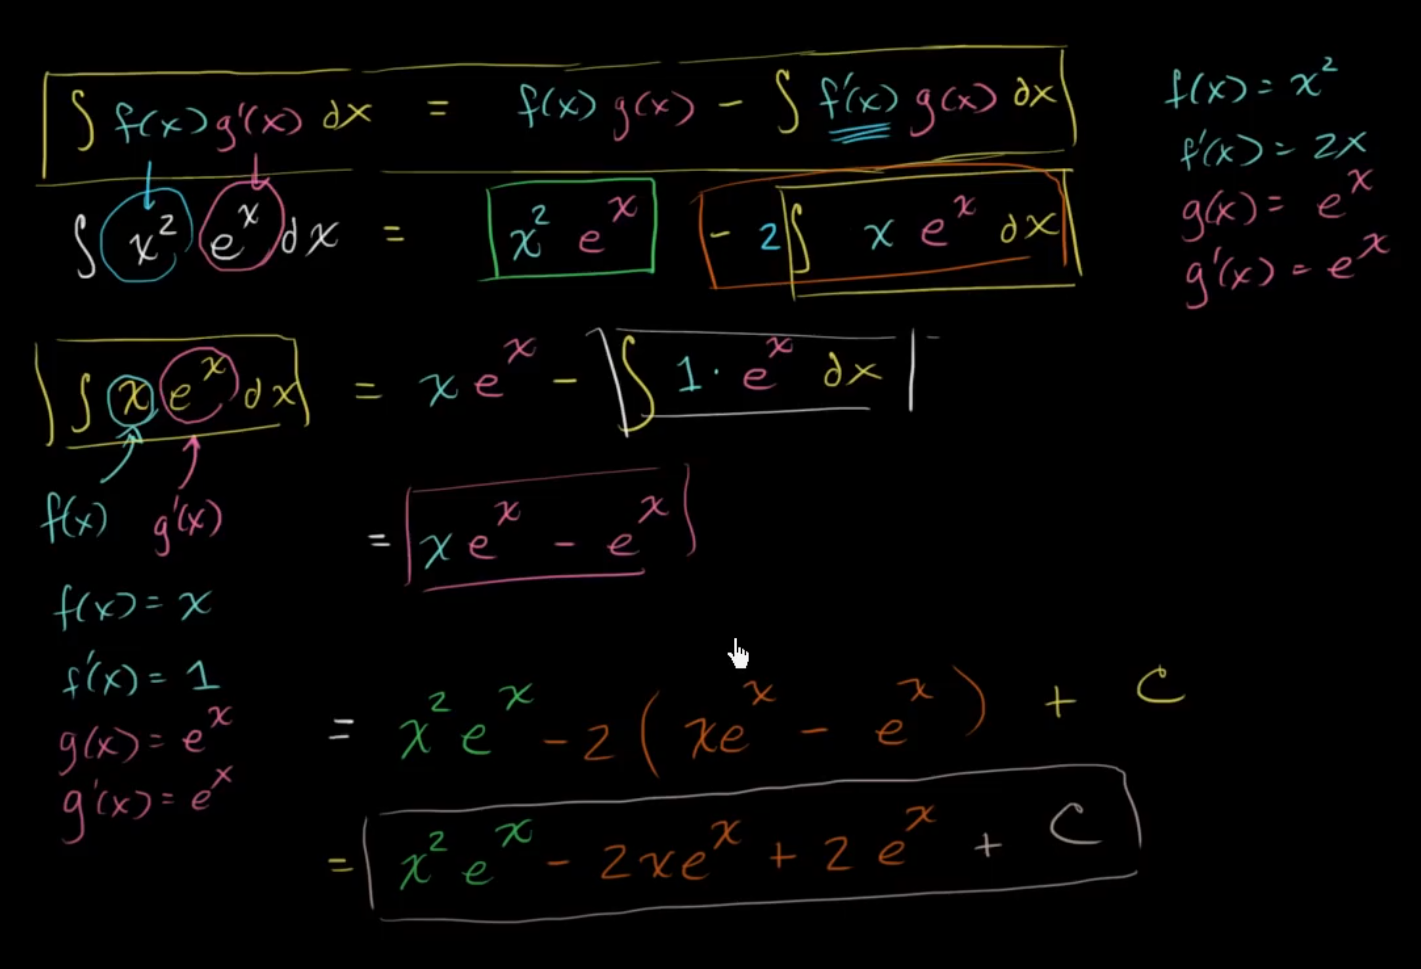 ∫ f(x) g'(x) dx = f(x) g(x) - ∫ f'(x) g(x) dx
∫ x² eˣ dx = x² eˣ - 2 ∫ x eˣ dx
f(x) = x²
f'(x) = 2x
g(x) = eˣ
g'(x) = eˣ
∫ x eˣ dx = x eˣ - ∫ 1 · eˣ dx
f(x) g'(x)
= x eˣ - eˣ
f(x) = x
f'(x) = 1
g(x) = eˣ
g'(x) = eˣ
= x² eˣ - 2 ( x eˣ - eˣ ) + C
= x² eˣ - 2x eˣ + 2 eˣ + C